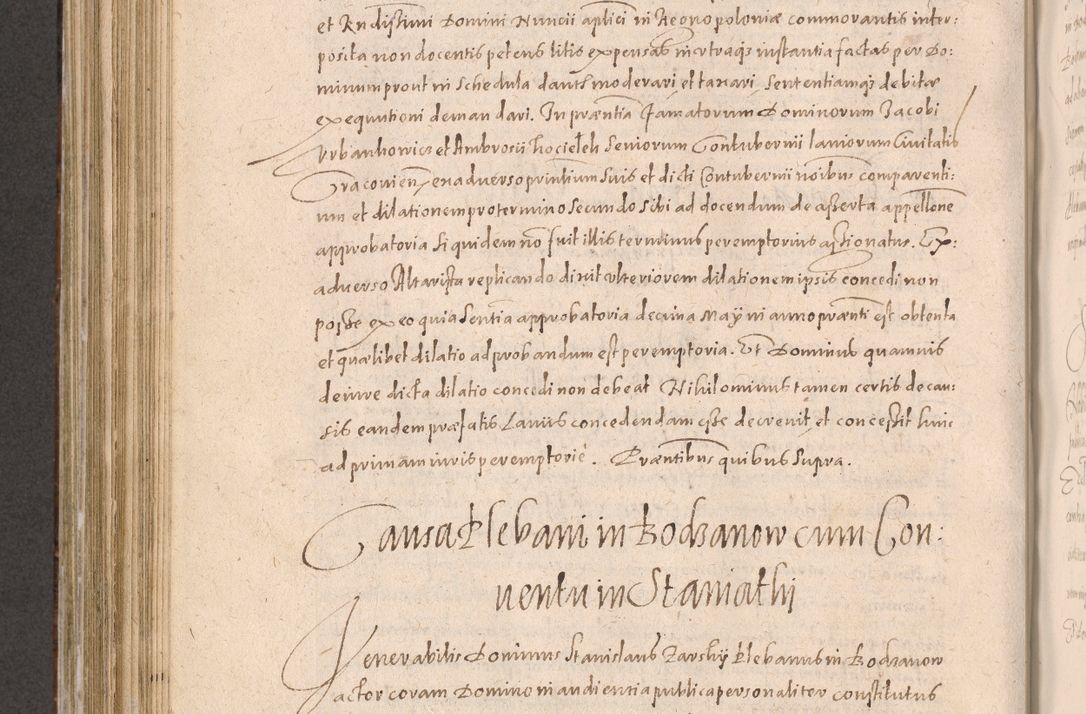 et Rndissimi Domini Nuncii aplici in Regno poloniæ commorantis inter:
posita non docentis petens litis expensas in utraqz instantia factas per Do:
minum prout in schedula dant moderari et taxari sententiamqz debitæ
exequutioni demandari. In præntia famatorum Dominorum Jacobi
Urbankowicz et Ambrosii Seniorum Contubernii laniorum Civitatis
Cracovien ex adverso printium suis et dicti Contubernii noibus comparenti:
um et dilationem pro termino secundo sibi ad docendum de asserta appellone
approbatoria siquidem no fuit illis terminus peremptorius assignatus. Ex:
adverso Altarista replicando dixit ulteriorem dilationem ipsis concedi non
posse ex eo quia sentia approbatoria decima Maÿ in anno prænti est obtenta
et quælibet dilatio ad probandum est peremptoria. Et Dominus quamvis
de iure dicta dilatio concedi non debeat Nihilominus tamen certis de cau:
sis eandem præfatis Laniis concedendam esse decrevit et concessit hinc
ad primam iuris peremptorie. Præntibus quibus supra.
Causa Plebani in Bodzanow cum Con:
ventu in Staniathi
Venerabilis Dominus Stanislaus Zarskÿ plebanus in Bodzanow
actor coram Domino in audientia publica personaliter constitutus